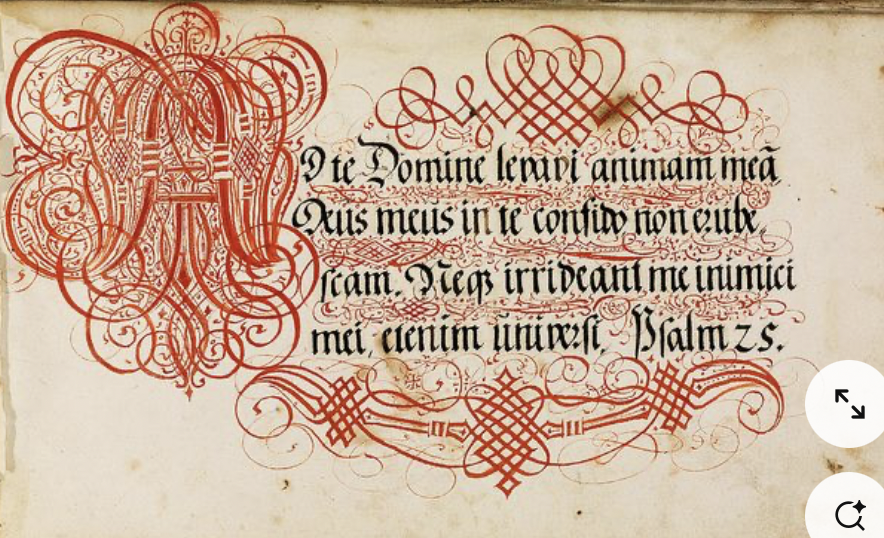 AD te Domine levavi animam meā
Deus meus in te confido non erube,
scam. Neqȝ irrideant me inimici
mei, etenim universi. Psalm 25.